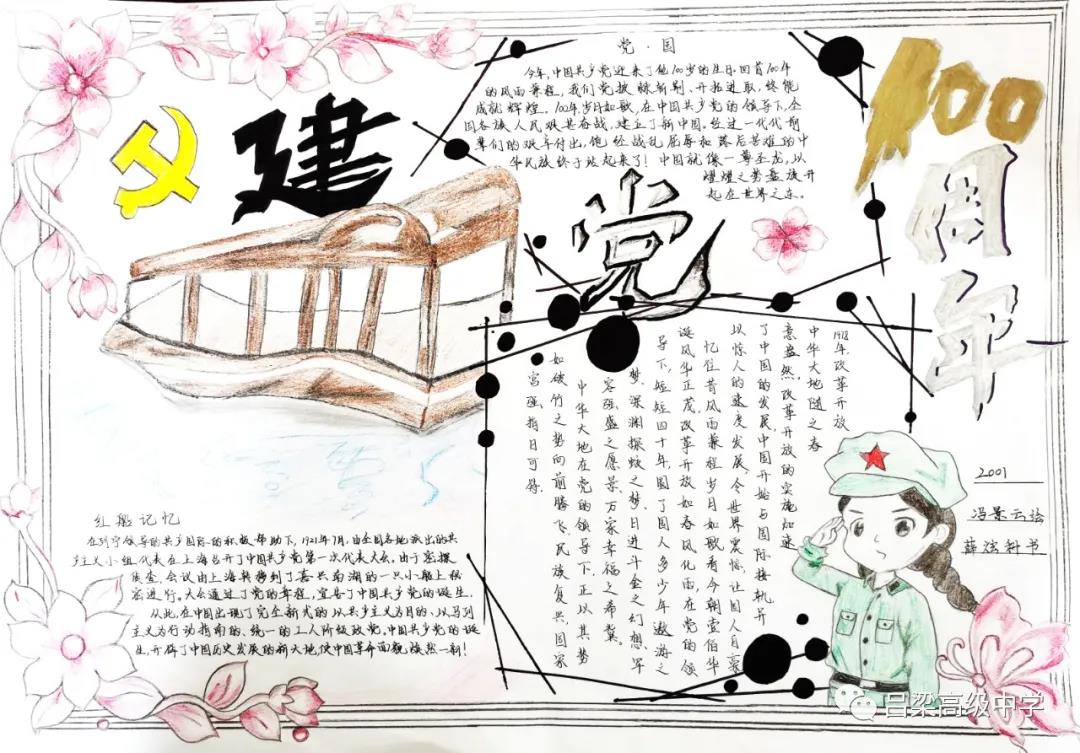 建
党
100
周
年
党·国
今年,中国共产党迎来了他100岁的生日。回首100年
的风雨兼程,我们党披棘斩荆、开拓进取,终能
成就辉煌。100年岁月如歌,在中国共产党的领导下,全
国各族人民艰苦奋战,建立了新中国。经过一代代前
辈们的艰辛付出,饱经战乱屈辱和落后苦难的中
华民族终于站起来了!中国就像一尊圣龙,以
耀耀之势盘旋升
起在世界之东。
1978年,改革开放
中华大地随之春
意盎然,改革开放的实施加速
了中国的发展,中国开始与国际接轨并
以惊人的速度发展,令世界震惊,让国人自豪
忆往昔风雨兼程岁月如歌,看今朝壹佰华
诞风华正茂,改革开放如春风化雨,在党的领
导下,短短四十年,圆了国人多少年遨游之
梦,深渊探蛟之梦,日进斗金之幻想,军
容强盛之愿景,万家幸福之希冀。
中华大地在党的领导下,正以其势
如破竹之势向前腾飞,民族复兴,国家
富强,指日可待。
红船记忆
在列宁领导的共产国际的积极帮助下,1921年7月,由全国各地派出的共
产主义小组代表在上海召开了中国共产党第一次代表大会。由于密探
侦查,会议由上海转移到了嘉兴南湖的一只小船上秘
密进行。大会通过了党的章程,宣告了中国共产党的诞生。
从此,在中国出现了完全新式的、以共产主义为目的、以马列
主义为行动指南的、统一的工人阶级政党。中国共产党的诞
生,开辟了中国历史发展的新天地,使中国革命面貌焕然一新!
2001
冯景云绘
薛泫科书
吕梁高级中学